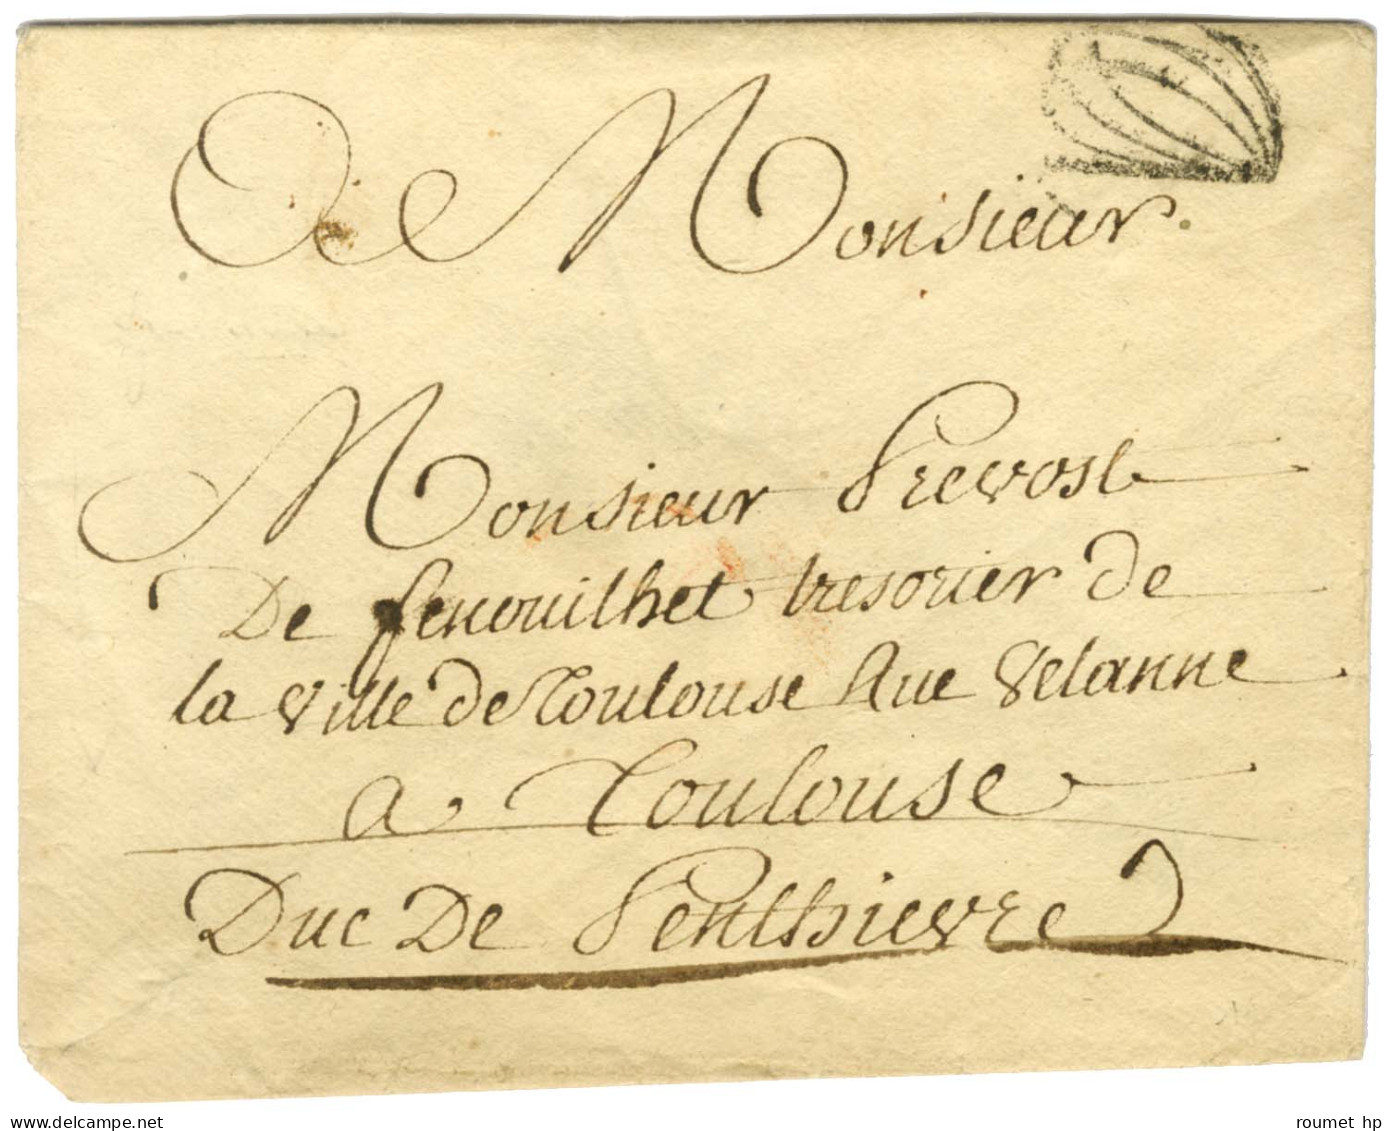 De Monsieur.
Monsieur Prevost
De fenouilhet tresorier de
la ville de Toulouse Rue Velanne
a Toulouse
Duc De Penthievre
delcampe.net
roumet hp